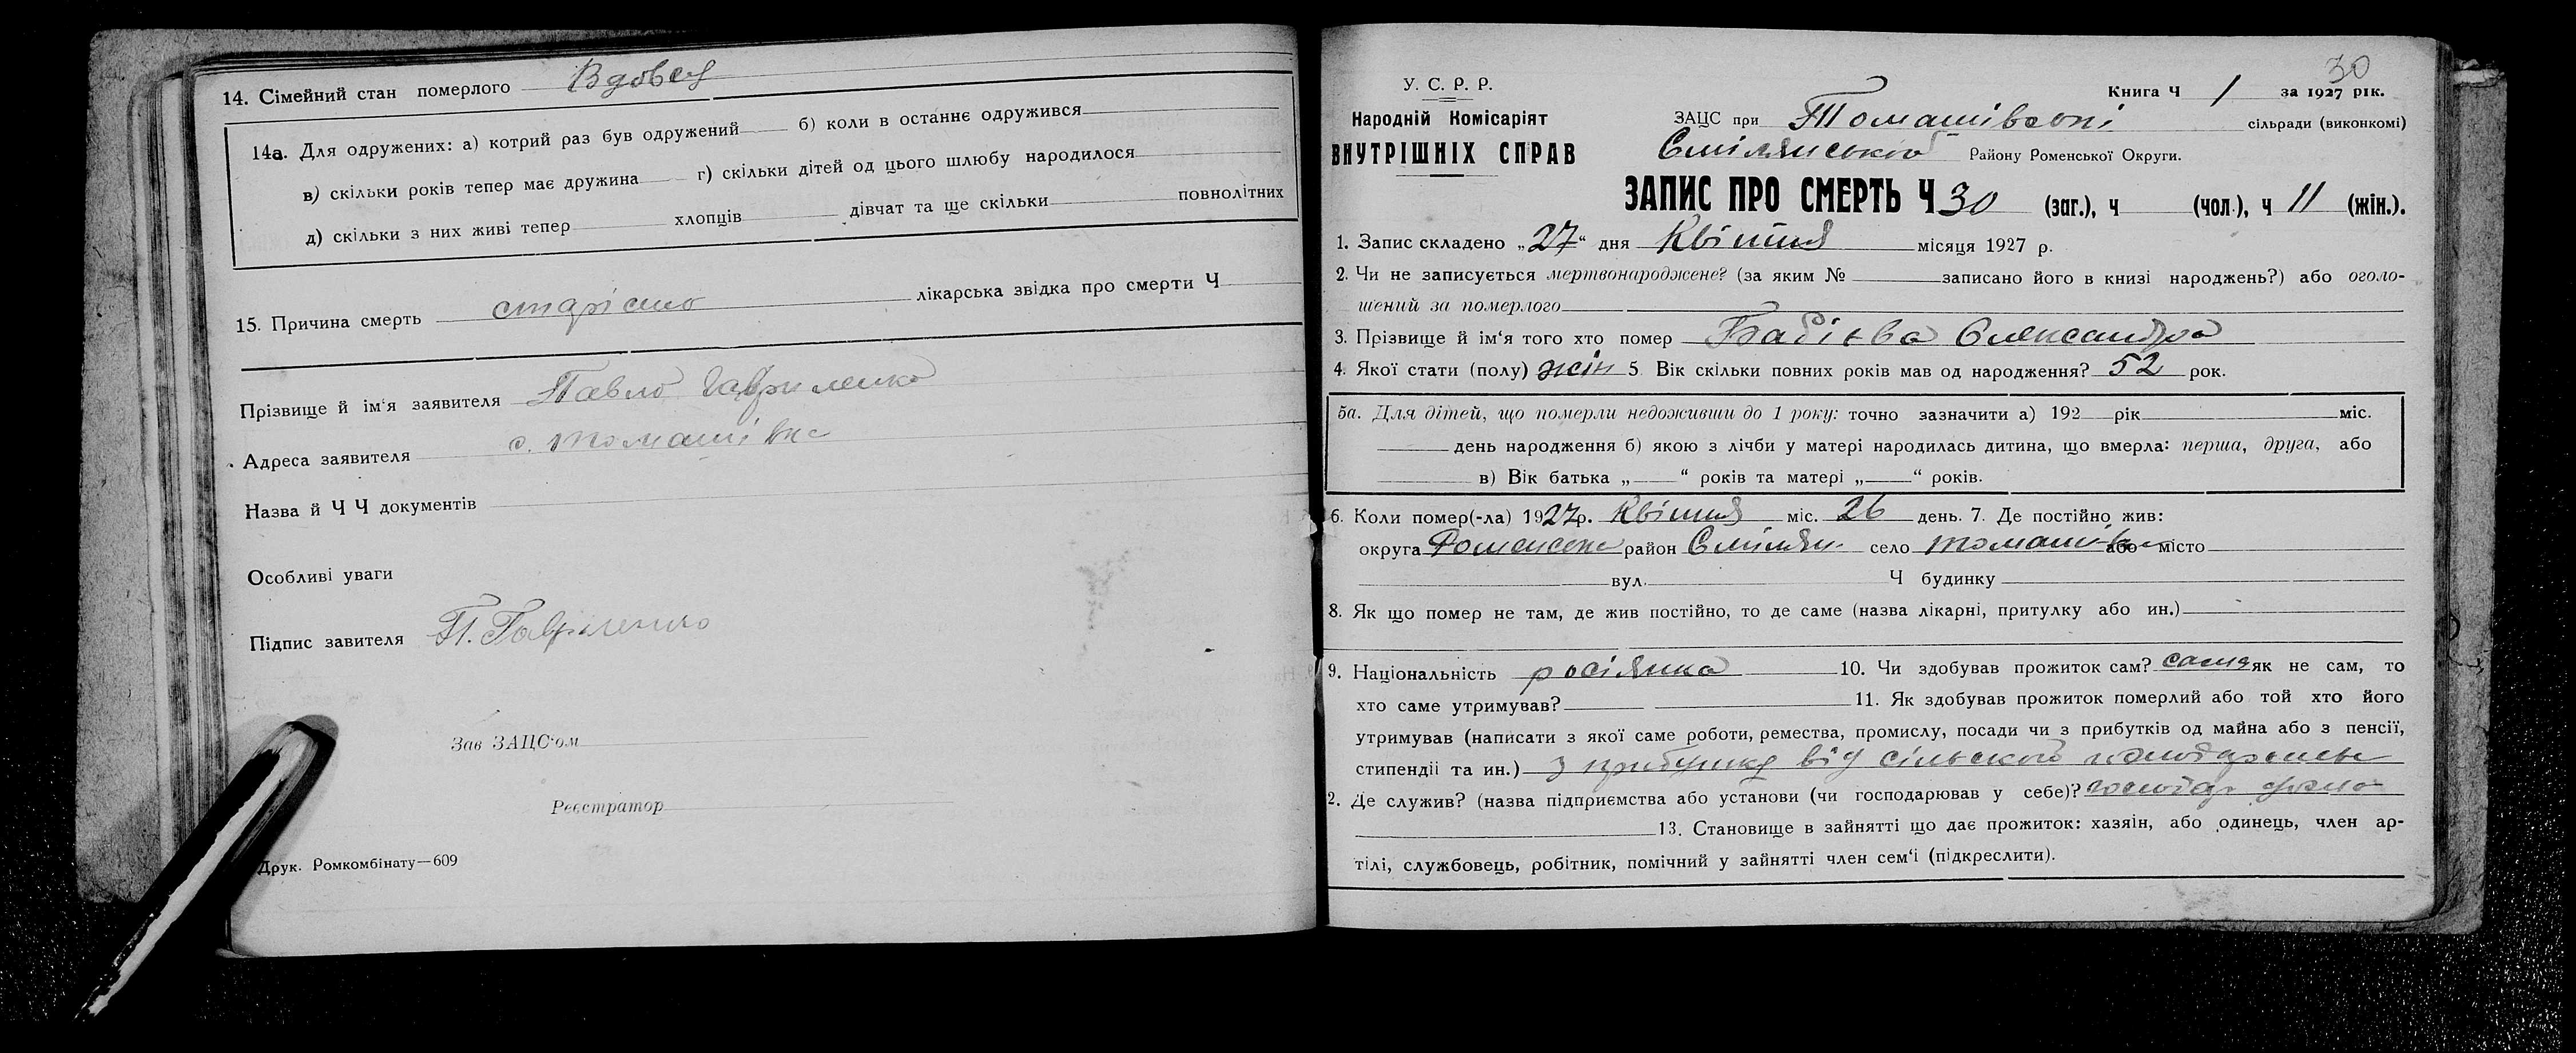 14. Сімейний стан померлого Вдовец
14а. Для одружених: а) котрий раз був одружений б) коли в останнє одружився
в) скільки років тепер має дружина г) скільки дітей од цього шлюбу народилося
д) скільки з них живі тепер хлопців дівчат та ще скільки повнолітних
15. Причина смерть старість лікарська звідка про смерти Ч
Прізвище й ім'я заявителя Павло Гавриленко
Адреса заявителя с. Томашівка
Назва й Ч Ч документів
Особливі уваги
Підпис завителя П. Гавриленко
Зав ЗАЦС'ом
Реєстратор
Друк. Ромкомбінату—609
30
У. С. Р. Р.
Народній Комісаріят
ВНУТРІШНІХ СПРАВ
Книга Ч 1 за 1927 рік.
ЗАЦС при Томашівськ сільради (виконкомі)
Смілянської Району Роменської Округи.
ЗАПИС ПРО СМЕРТЬ Ч 30 (заг.), ч (чол.), ч 11 (жін.).
1. Запис складено „27" дня Квітня місяця 1927 р.
2. Чи не записується мертвонароджене? (за яким № записано його в книзі народжень?) або оголо-
шений за померлого
3. Прізвище й ім'я того хто помер Бабієва Олександра
4. Якої стати (полу) жін 5. Вік скільки повних років мав од народження? 52 рок.
5а. Для дітей, що померли недоживши до 1 року: точно зазначити а) 192 рік міс.
день народження б) якою з лічби у матері народилась дитина, що вмерла: перша, друга, або
в) Вік батька „ " років та матері „ " років.
6. Коли помер(-ла) 1927р. Квітня міс. 26 день. 7. Де постійно жив:
округа Роменська район Смілян село Томашівка або місто
вул. Ч будинку
8. Як що помер не там, де жив постійно, то де саме (назва лікарні, притулку або ин.)
9. Національність росіянка 10. Чи здобував прожиток сам? сама як не сам, то
хто саме утримував? 11. Як здобував прожиток померлий або той хто його
утримував (написати з якої саме роботи, ремества, промислу, посади чи з прибутків од майна або з пенсії,
стипендії та ин.) з прибутку від сільского
2. Де служив? (назва підприємства або установи (чи господарював у себе)?
13. Становище в зайнятті що дає прожиток: хазяін, або одинець, член ар-
тілі, службовець, робітник, помічний у зайнятті член сем'і (підкреслити).